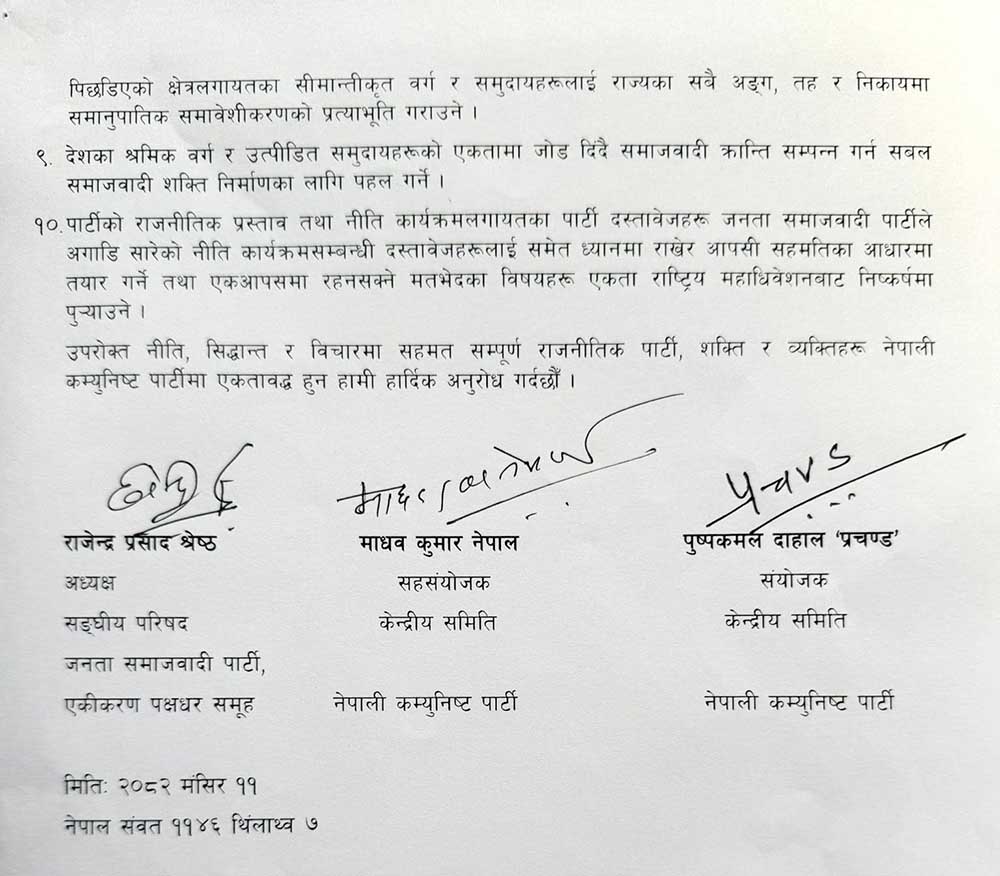 पिछडिएको क्षेत्रलगायतका सीमान्तीकृत वर्ग र समुदायहरूलाई राज्यका सबै अङ्ग, तह र निकायमा
समानुपातिक समावेशीकरणको प्रत्याभूति गराउने ।
९. देशका श्रमिक वर्ग र उत्पीडित समुदायहरूको एकतामा जोड दिँदै समाजवादी क्रान्ति सम्पन्न गर्न सबल
समाजवादी शक्ति निर्माणका लागि पहल गर्ने ।
१०. पार्टीको राजनीतिक प्रस्ताव तथा नीति कार्यक्रमलगायतका पार्टी दस्तावेजहरू जनता समाजवादी पार्टीले
अगाडि सारेको नीति कार्यक्रमसम्बन्धी दस्तावेजहरूलाई समेत ध्यानमा राखेर आपसी सहमतिका आधारमा
तयार गर्ने तथा एकआपसमा रहनसक्ने मतभेदका विषयहरू एकता राष्ट्रिय महाधिवेशनबाट निष्कर्षमा
पुऱ्याउने ।
उपरोक्त नीति, सिद्धान्त र विचारमा सहमत सम्पूर्ण राजनीतिक पार्टी, शक्ति र व्यक्तिहरू नेपाली
कम्युनिष्ट पार्टीमा एकतावद्ध हुन हामी हार्दिक अनुरोध गर्दछौँ ।
राजेन्द्र प्रसाद श्रेष्ठ माधव कुमार नेपाल पुष्पकमल दाहाल ‘प्रचण्ड’
अध्यक्ष सहसंयोजक संयोजक
सङ्घीय परिषद केन्द्रीय समिति केन्द्रीय समिति
जनता समाजवादी पार्टी,
एकीकरण पक्षधर समूह नेपाली कम्युनिष्ट पार्टी नेपाली कम्युनिष्ट पार्टी
मितिः २०८२ मंसिर ११
नेपाल संवत ११४६ थिंलाथ्व ७